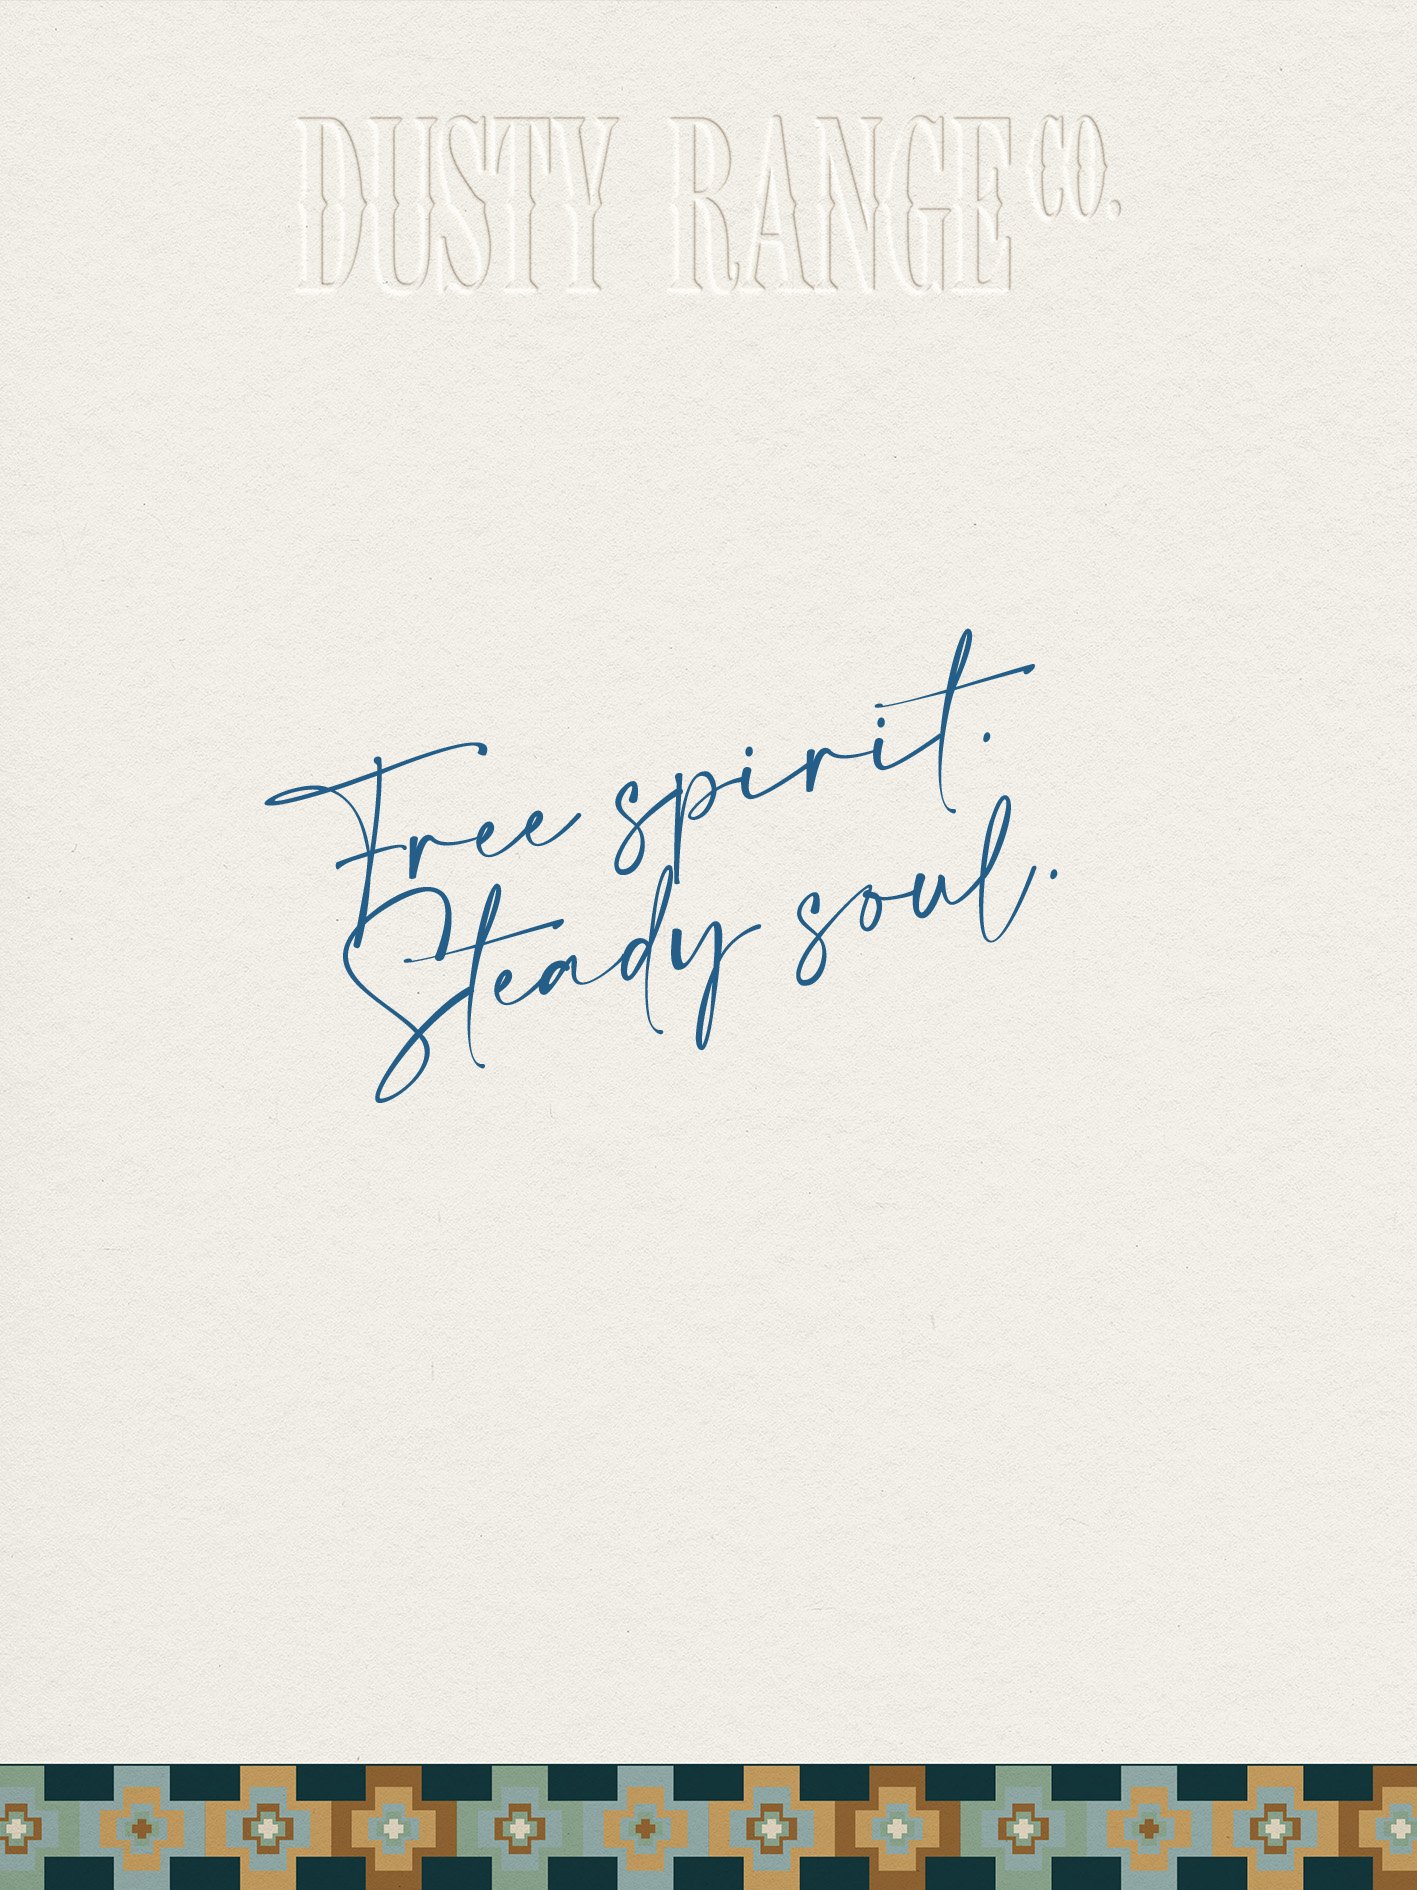 DUSTY RANGE CO.
Free spirit.
Steady soul.